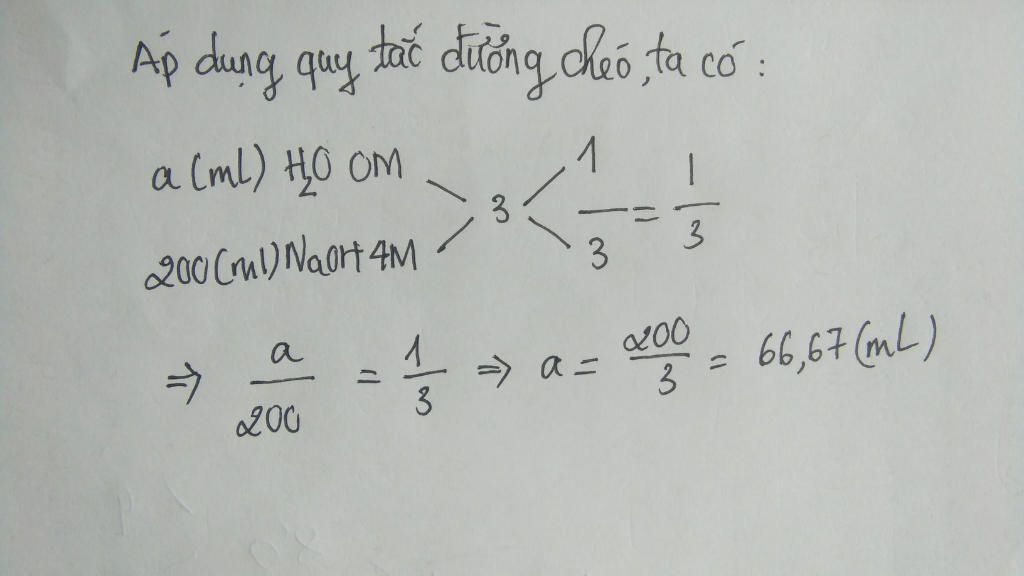 Áp dụng quy tắc đường chéo, ta có:
a (ml) H₂O 0M
200(ml) NaOH 4M
3
1
3
= 1/3
⇒ a/200 = 1/3 ⇒ a = 200/3 = 66,67 (mL)